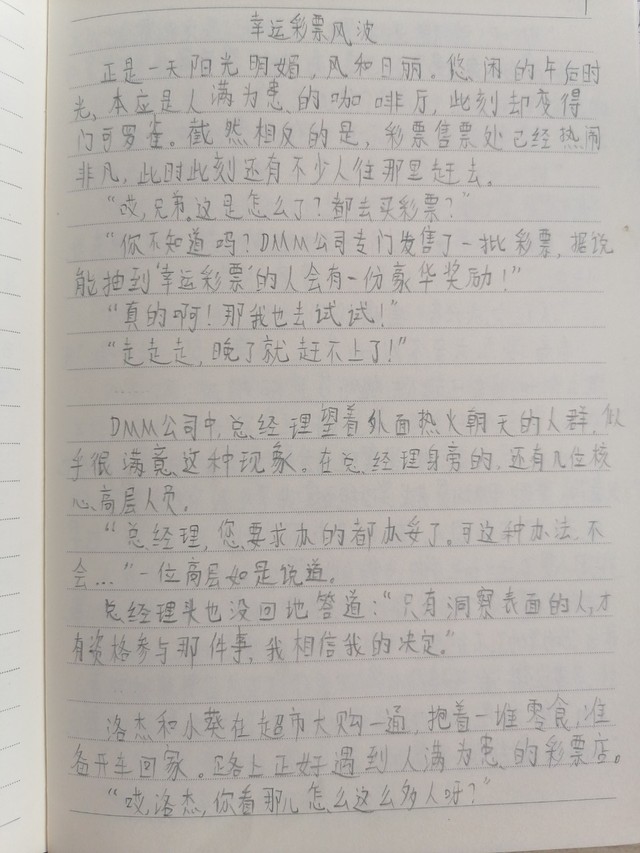 幸运彩票风波
正是一天阳光明媚，风和日丽。悠闲的午后时
光，本应是人满为患的咖啡厅，此刻却变得
门可罗雀。截然相反的是，彩票售票处已经热闹
非凡，此时此刻还有不少人往那里赶去。
“哎，兄弟。这是怎么了？都去买彩票？”
“你不知道吗？DMM公司专门发售了一批彩票，据说
能抽到‘幸运彩票’的人会有一份豪华奖励！”
“真的啊！那我也去试试！”
“走走走，晚了就赶不上了！”
DMM公司中，总经理望着外面热火朝天的人群，似
乎很满意这种现象。在总经理身旁的，还有几位核
心高层人员。
“总经理，您要求办的都办妥了。可这种办法，不
会…”一位高层如是说道。
总经理头也没回地答道：“只有洞察表面的人，才
有资格参与那件事，我相信我的决定。”
洛杰和小葵在超市大购一通，抱着一堆零食，准
备开车回家。路上正好遇到人满为患的彩票店。
“哎，洛杰，你看那儿怎么这么多人呀？”